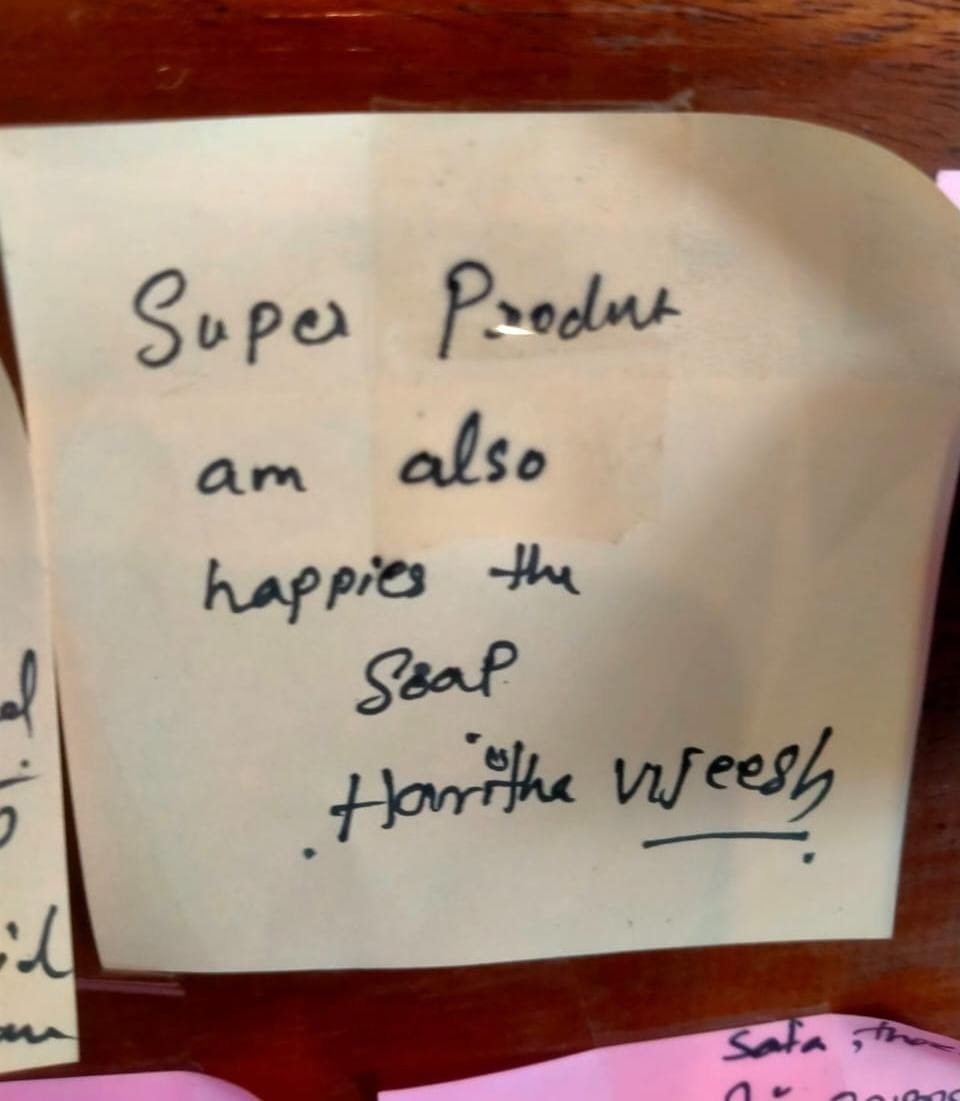 Super Produt
am also
happies the
Soap
Haritha Vijeesh
Safa,